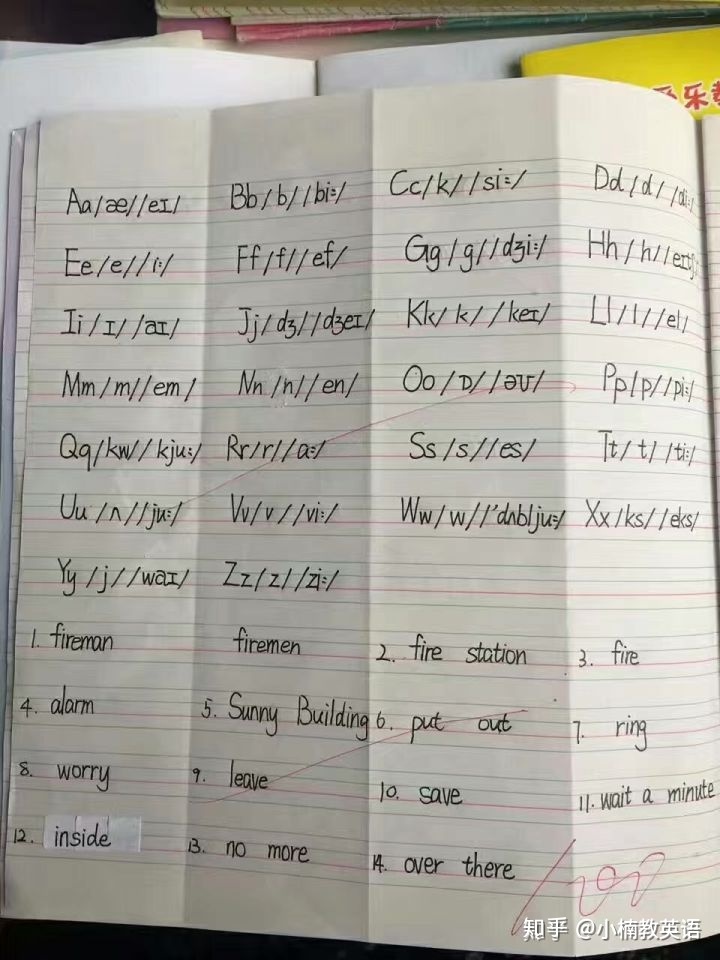 乐
Aa/æ//eɪ/ Bb/b//bi:/ Cc/k//si:/ Dd/d//di:/
Ee/e//i:/ Ff/f//ef/ Gg/g//dʒi:/ Hh/h//eɪtʃ/
Ii/ɪ//aɪ/ Jj/dʒ//dʒeɪ/ Kk/k//keɪ/ Ll/l//el/
Mm/m//em/ Nn/n//en/ Oo/ɒ//əʊ/ Pp/p//pi:/
Qq/kw//kju:/ Rr/r//a:/ Ss/s//es/ Tt/t//ti:/
Uu/ʌ//ju:/ Vv/v//vi:/ Ww/w//'dʌblju:/ Xx/ks//eks/
Yy/j//waɪ/ Zz/z//zi:/
1. fireman firemen 2. fire station 3. fire
4. alarm 5. Sunny Building 6. put out 7. ring
8. worry 9. leave 10. save 11. wait a minute
12. inside 13. no more 14. over there
100
知乎 @小楠教英语